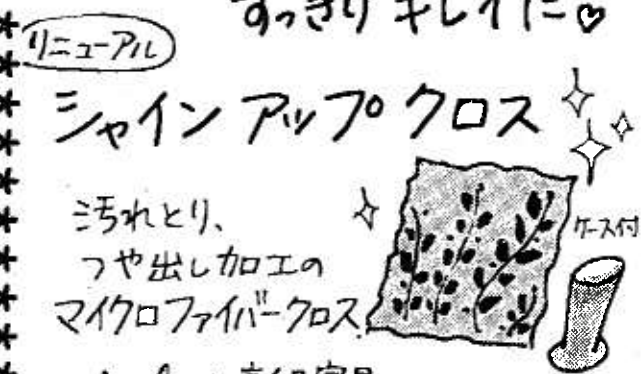 すっきり キレイに♡
リニューアル
シャインアップクロス
汚れとり、
ケース付
つや出し加工の
マイクロファイバークロス